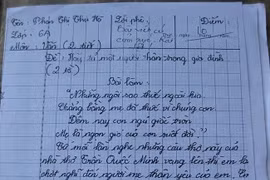 Tên: Phan Thị Thu Hà Lời phê: Điểm:
Lớp: 6A
Môn: Văn (2 tiết)
Đề: Hãy tả một người thân trong gia đình
(2 tờ)
Bài làm
"Những ngôi sao thức ngoài kia
Chẳng bằng mẹ đã thức vì chúng con
Đêm nay con ngủ giấc tròn
Mẹ là ngọn gió của con suốt đời."
mỗi lần nghe những câu thơ này của
nhà thơ Trần Quốc Minh vang lên thì em
nghĩ đến người mẹ thân yêu của em.